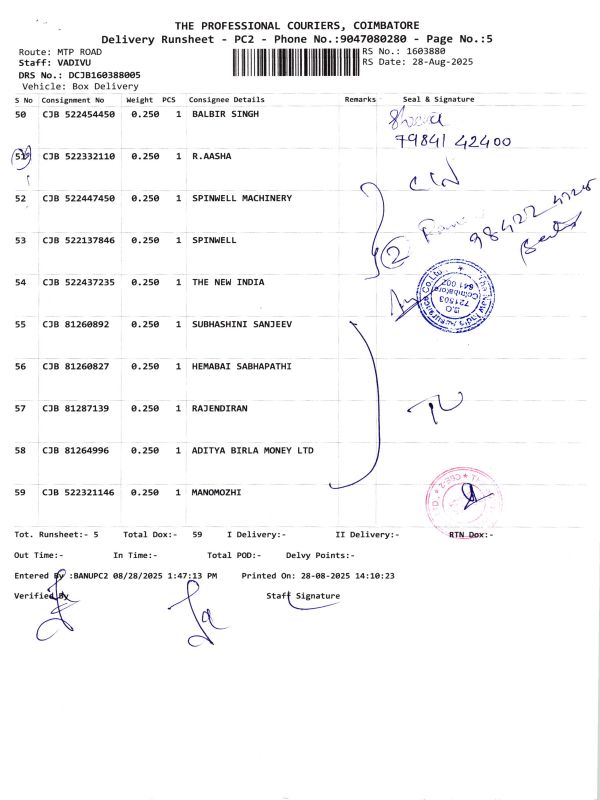 THE PROFESSIONAL COURIERS, COIMBATORE
Delivery Runsheet - PC2 - Phone No.:9047080280 - Page No.:5
Route: MTP ROAD
RS No.: 1603880
Staff: VADIVU
RS Date: 28-Aug-2025
DRS No.: DCJB160388005
Vehicle: Box Delivery
S No Consignment No Weight PCS Consignee Details Remarks Seal & Signature
50 CJB 522454450 0.250 1 BALBIR SINGH
79841 42400
51 CJB 522332110 0.250 1 R.AASHA
52 CJB 522447450 0.250 1 SPINWELL MACHINERY
53 CJB 522137846 0.250 1 SPINWELL
2
54 CJB 522437235 0.250 1 THE NEW INDIA
55 CJB 81260892 0.250 1 SUBHASHINI SANJEEV
56 CJB 81260827 0.250 1 HEMABAI SABHAPATHI
57 CJB 81287139 0.250 1 RAJENDIRAN
58 CJB 81264996 0.250 1 ADITYA BIRLA MONEY LTD
59 CJB 522321146 0.250 1 MANOMOZHI
Tot. Runsheet:- 5 Total Dox:- 59 I Delivery:- II Delivery:- RTN Dox:-
Out Time:- In Time:- Total POD:- Delvy Points:-
Entered By :BANUPC2 08/28/2025 1:47:13 PM Printed On: 28-08-2025 14:10:23
Verified By Staff Signature